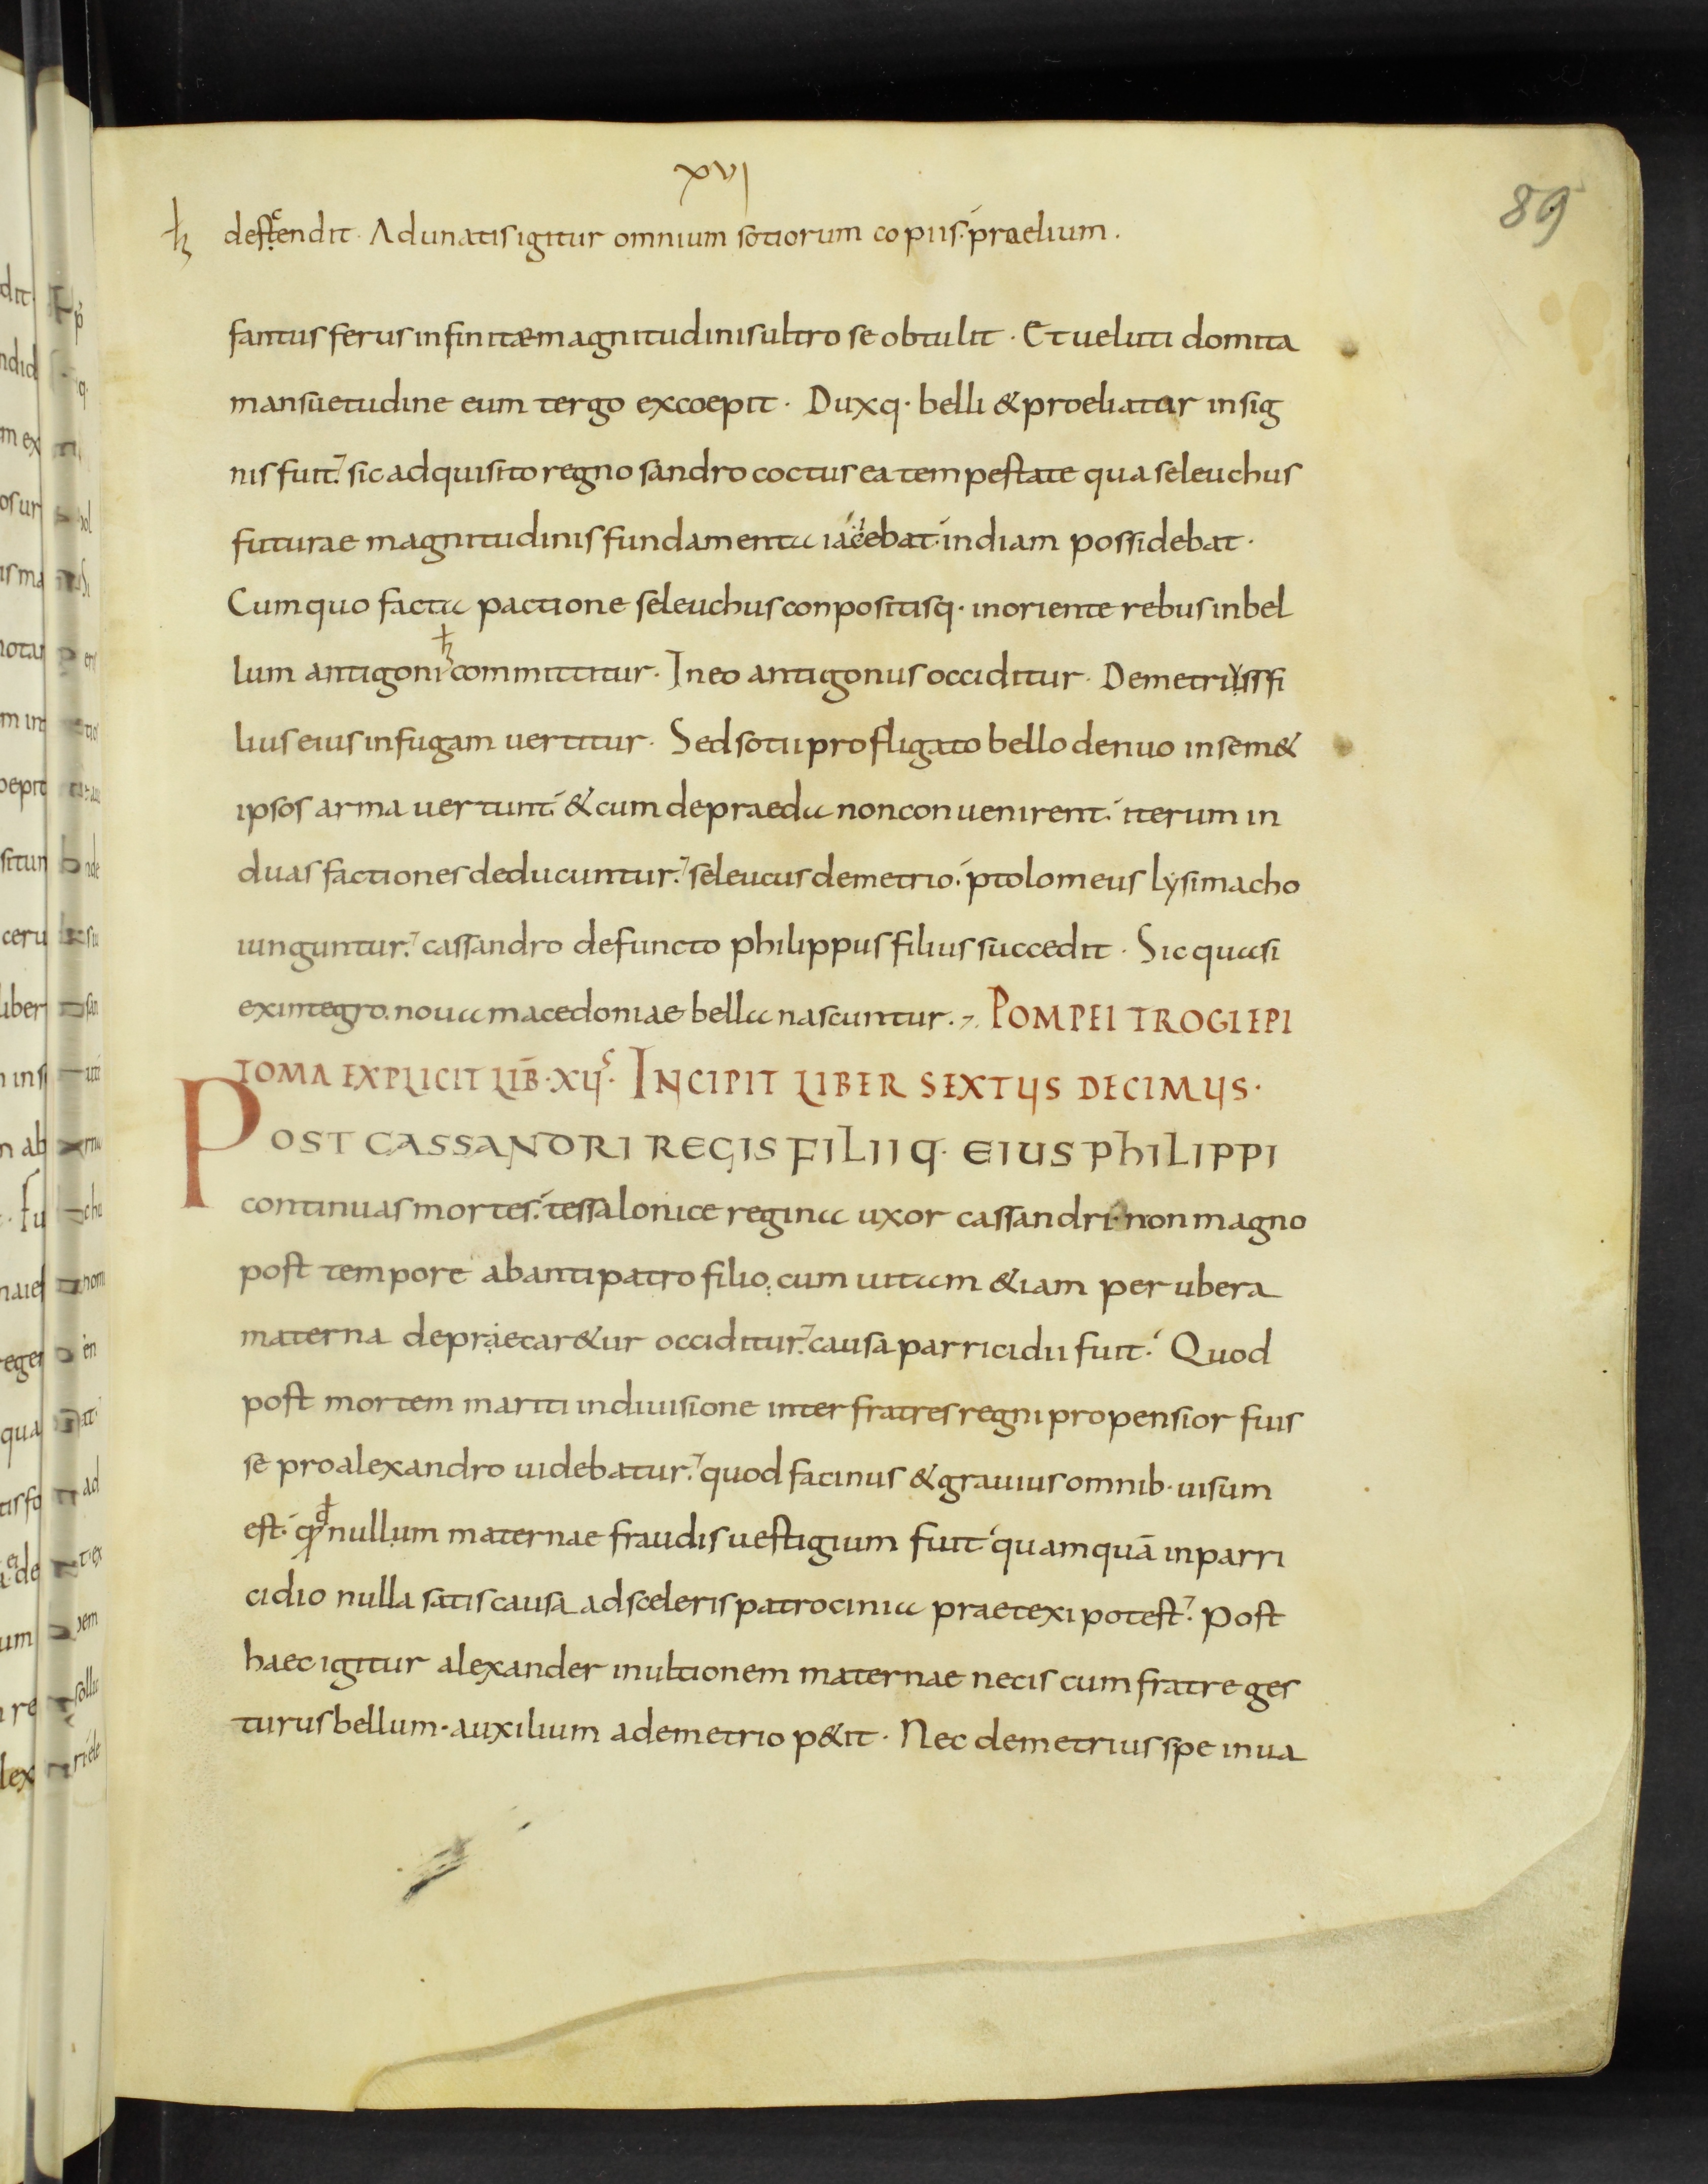 xvi
89
destendit · Adunatis igitur omnium sotiorum copiis· praelium ·
fantus ferus infinitae magnitudinis ultro se obtulit · Et ueluti domita
mansuetudine eum tergo excoepit · Duxq· belli & proeliatar insig
nis fuit· sic adquisito regno sandrococtus ea tempestate qua seleuchus
futurae magnitudinis fundamenta iacebat· indiam possidebat ·
Cum quo facta pactione seleuchus conpositisq· in oriente rebus in bel
lum antigoni committitur · In eo antigonus occiditur · Demetrius fi
lius eius in fugam uertitur · Sed sotii profligato bello denuo in sem&
ipsos arma uertunt· & cum de praeda non conuenirent· iterum in
duas factiones deducuntur· seleucus demetrio· ptolomeus lysimacho
iunguntur· cassandro defuncto philippus filius succedit · Sic quasi
ex integro noua macedoniae bella nascuntur · POMPEI TROGI EPI
TOMA EXPLICIT LIB̄ · XV · INCIPIT LIBER SEXTUS DECIMUS ·
POST CASSANDRI REGIS FILIIQ· EIUS PHILIPPI
continuas mortes· tessalonice regina uxor cassandri· non magno
post tempore ab antipatro filio cum uitam &iam per ubera
materna depraecar&ur occiditur· causa parricidii fuit· Quod
post mortem mariti in diuisione inter fratres regni propensior fuis
se pro alexandro uidebatur· quod facinus & grauius omnib· uisum
est· nullum maternae fraudis uestigium fuit· quamquā in parri
cidio nulla satis causa ad sceleris patrocinia praetexi potest· Post
haec igitur alexander in ultionem maternae necis cum fratre ges
turus bellum · auxilium a demetrio p&it · Nec demetrius spe inua